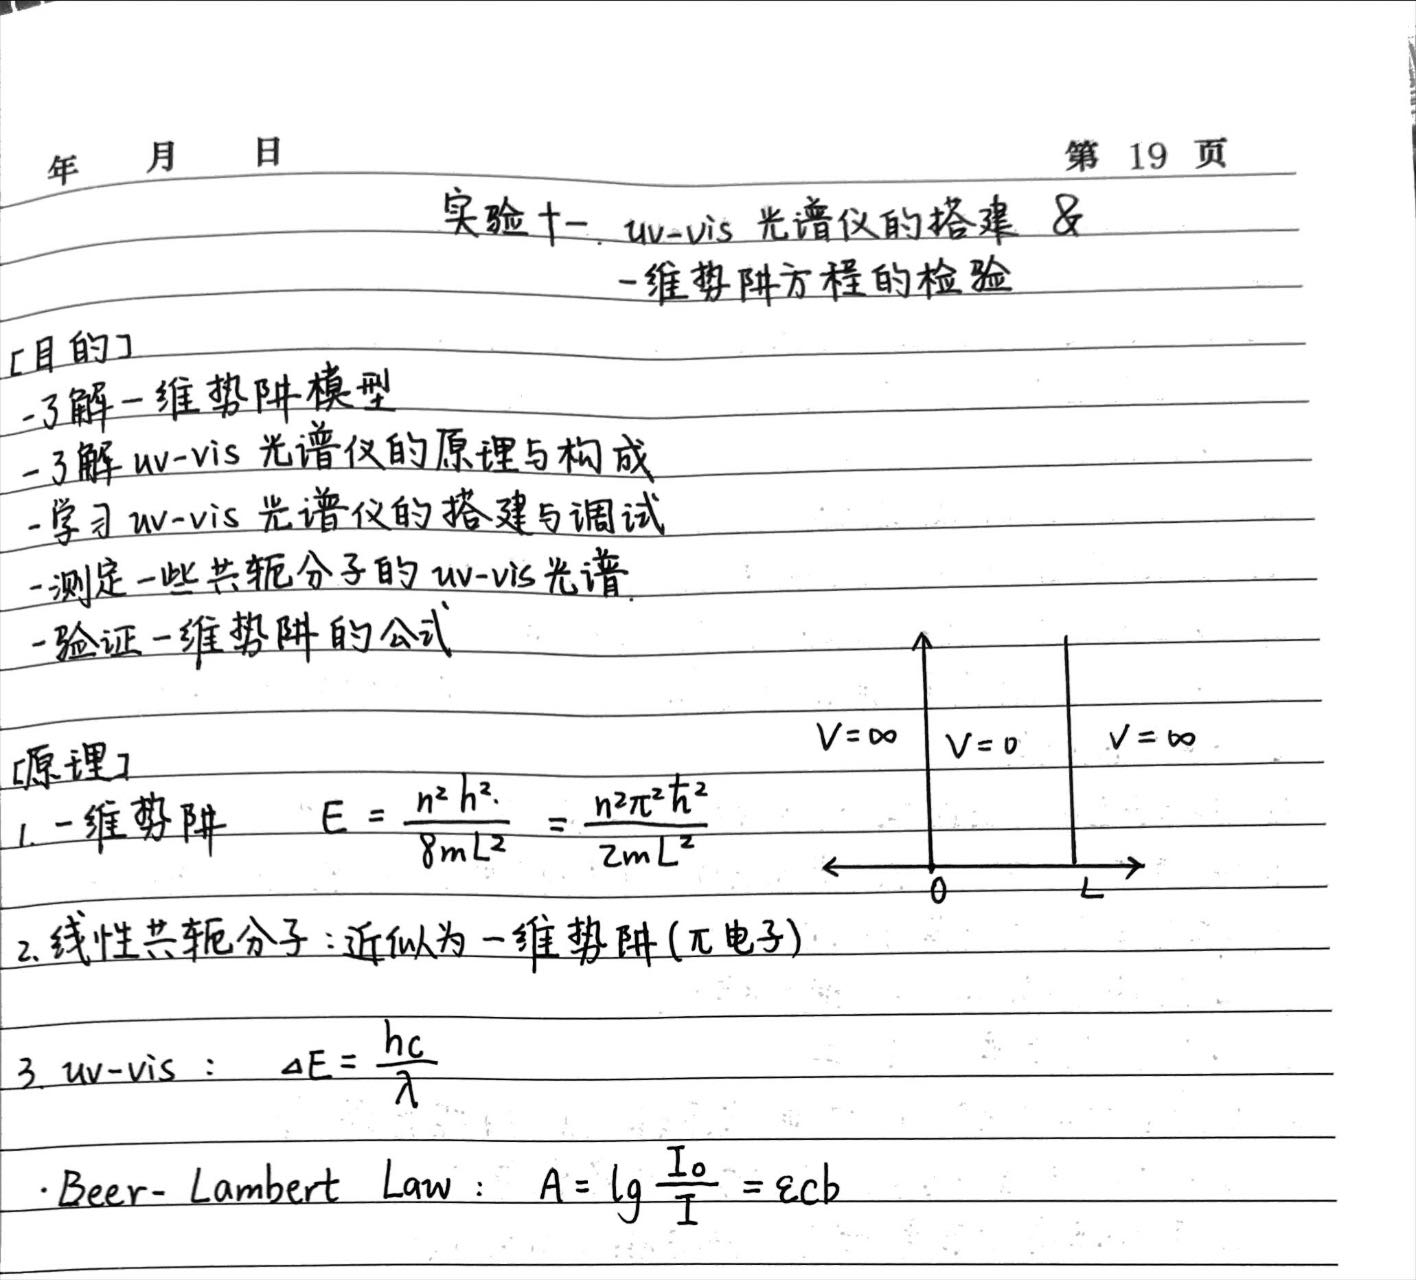 年 月 日 第 19 页
实验十一. uv-vis 光谱仪的搭建 &
一维势阱方程的检验
[目的]
-了解一维势阱模型
-了解 uv-vis 光谱仪的原理与构成
-学习 uv-vis 光谱仪的搭建与调试
-测定一些共轭分子的 uv-vis光谱.
-验证一维势阱的公式
V=∞ V=0 V=∞
0 L
[原理]
1. 一维势阱 E = n²h²/8mL² = n²π²ħ²/2mL²
2. 线性共轭分子:近似为一维势阱(π电子)
3. uv-vis : ΔE = hc/λ
·Beer-Lambert Law : A = lg I₀/I = εcb